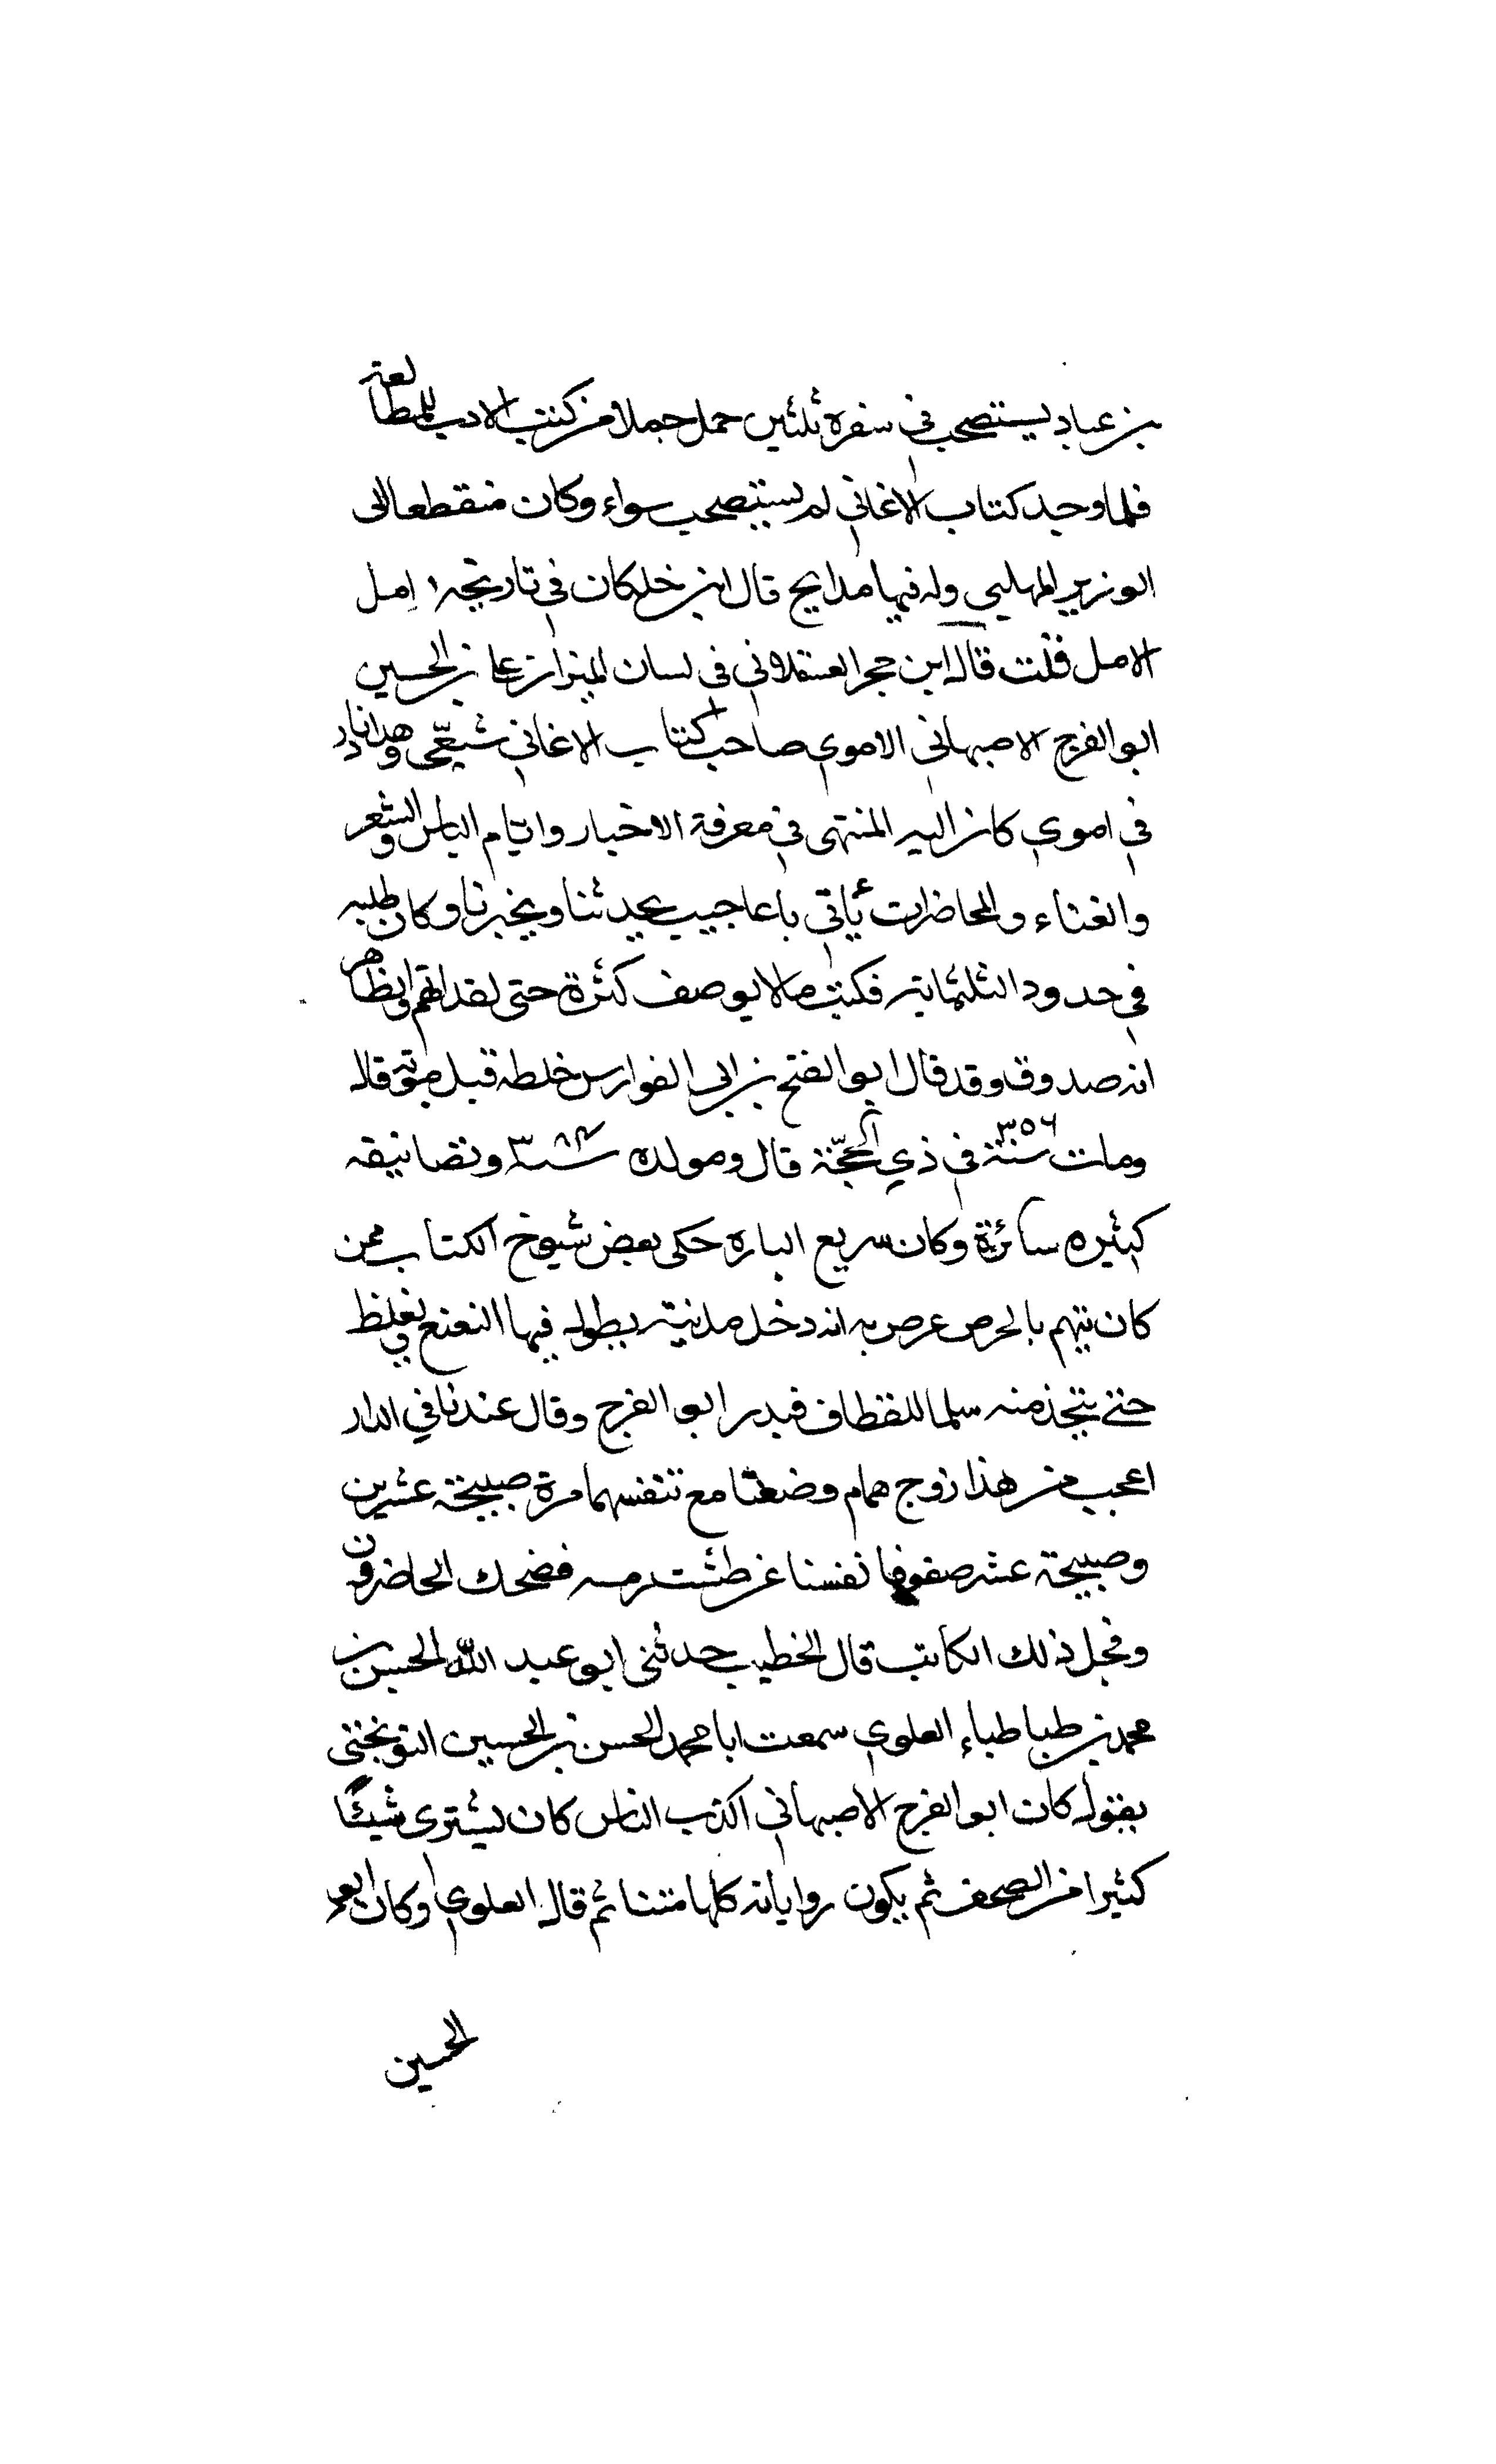 بن عباد يستصحب في سفره ثلثين حمل جملا من كتب الادب للمطالعة
فلما وجد كتاب الاغاني لم يستصحب سواء وكان منقطعا الى
الوزير المهلبي وله فيها مدايح قال ابن خلكان في تاريخه امل
الامل قلت قال ابن حجر العسقلاني في لسان الميزان علي بن الحسين
ابو الفرج الاصبهاني الاموي صاحب كتاب الاغاني شيعّى وهذا نادر
في اموي كان اليه المنتهى في معرفة الاخبار وايّام الناس والشعر
والغناء والمحاضرات يأتي باعاجيب يحدثنا ويخبرنا وكان طلبه
في حدود الثلثماية فكتب مالا يوصف كثرة حتى لقد اتهم والظاهر
انه صدوق وقد قال ابو الفتح بن ابي الفوارس خلطه قبل موته قال
ومات سنة ٣٥٦ في ذي الحجّة قال ومولده سنة ٢٨٤ وتصانيفه
كثيره سائرة وكان سريع البارة حكى بعض شيوخ الكتاب ممن
كان يتهم بالحرص عرص به انه دخل مدنية يطول فيها النعنع ويغلظ
حتى يتخذ منه سلما للقطاف فبدر ابو الفرج وقال عندنا في الدار
اعجب من هذا زوج همام وضعتا مع تنفسهما مرة صبيحة عشرين
وصبيحة عشر نفسنا فضحك الحاضرون
وخجل ذلك الكاتب قال الخطيب حدثنى ابو عبد اللّه الحسين بن
محمد بن طباطباء العلوي سمعت ابا محمد الحسن بن الحسين النوبختى
يقول كان ابو الفرج الاصبهاني اكذب الناس كان يشترى شيئًا
كثيرا من الصحف ثم يكون رواياته كلها متنا ثم قال العلوي وكان ابو
الحسين